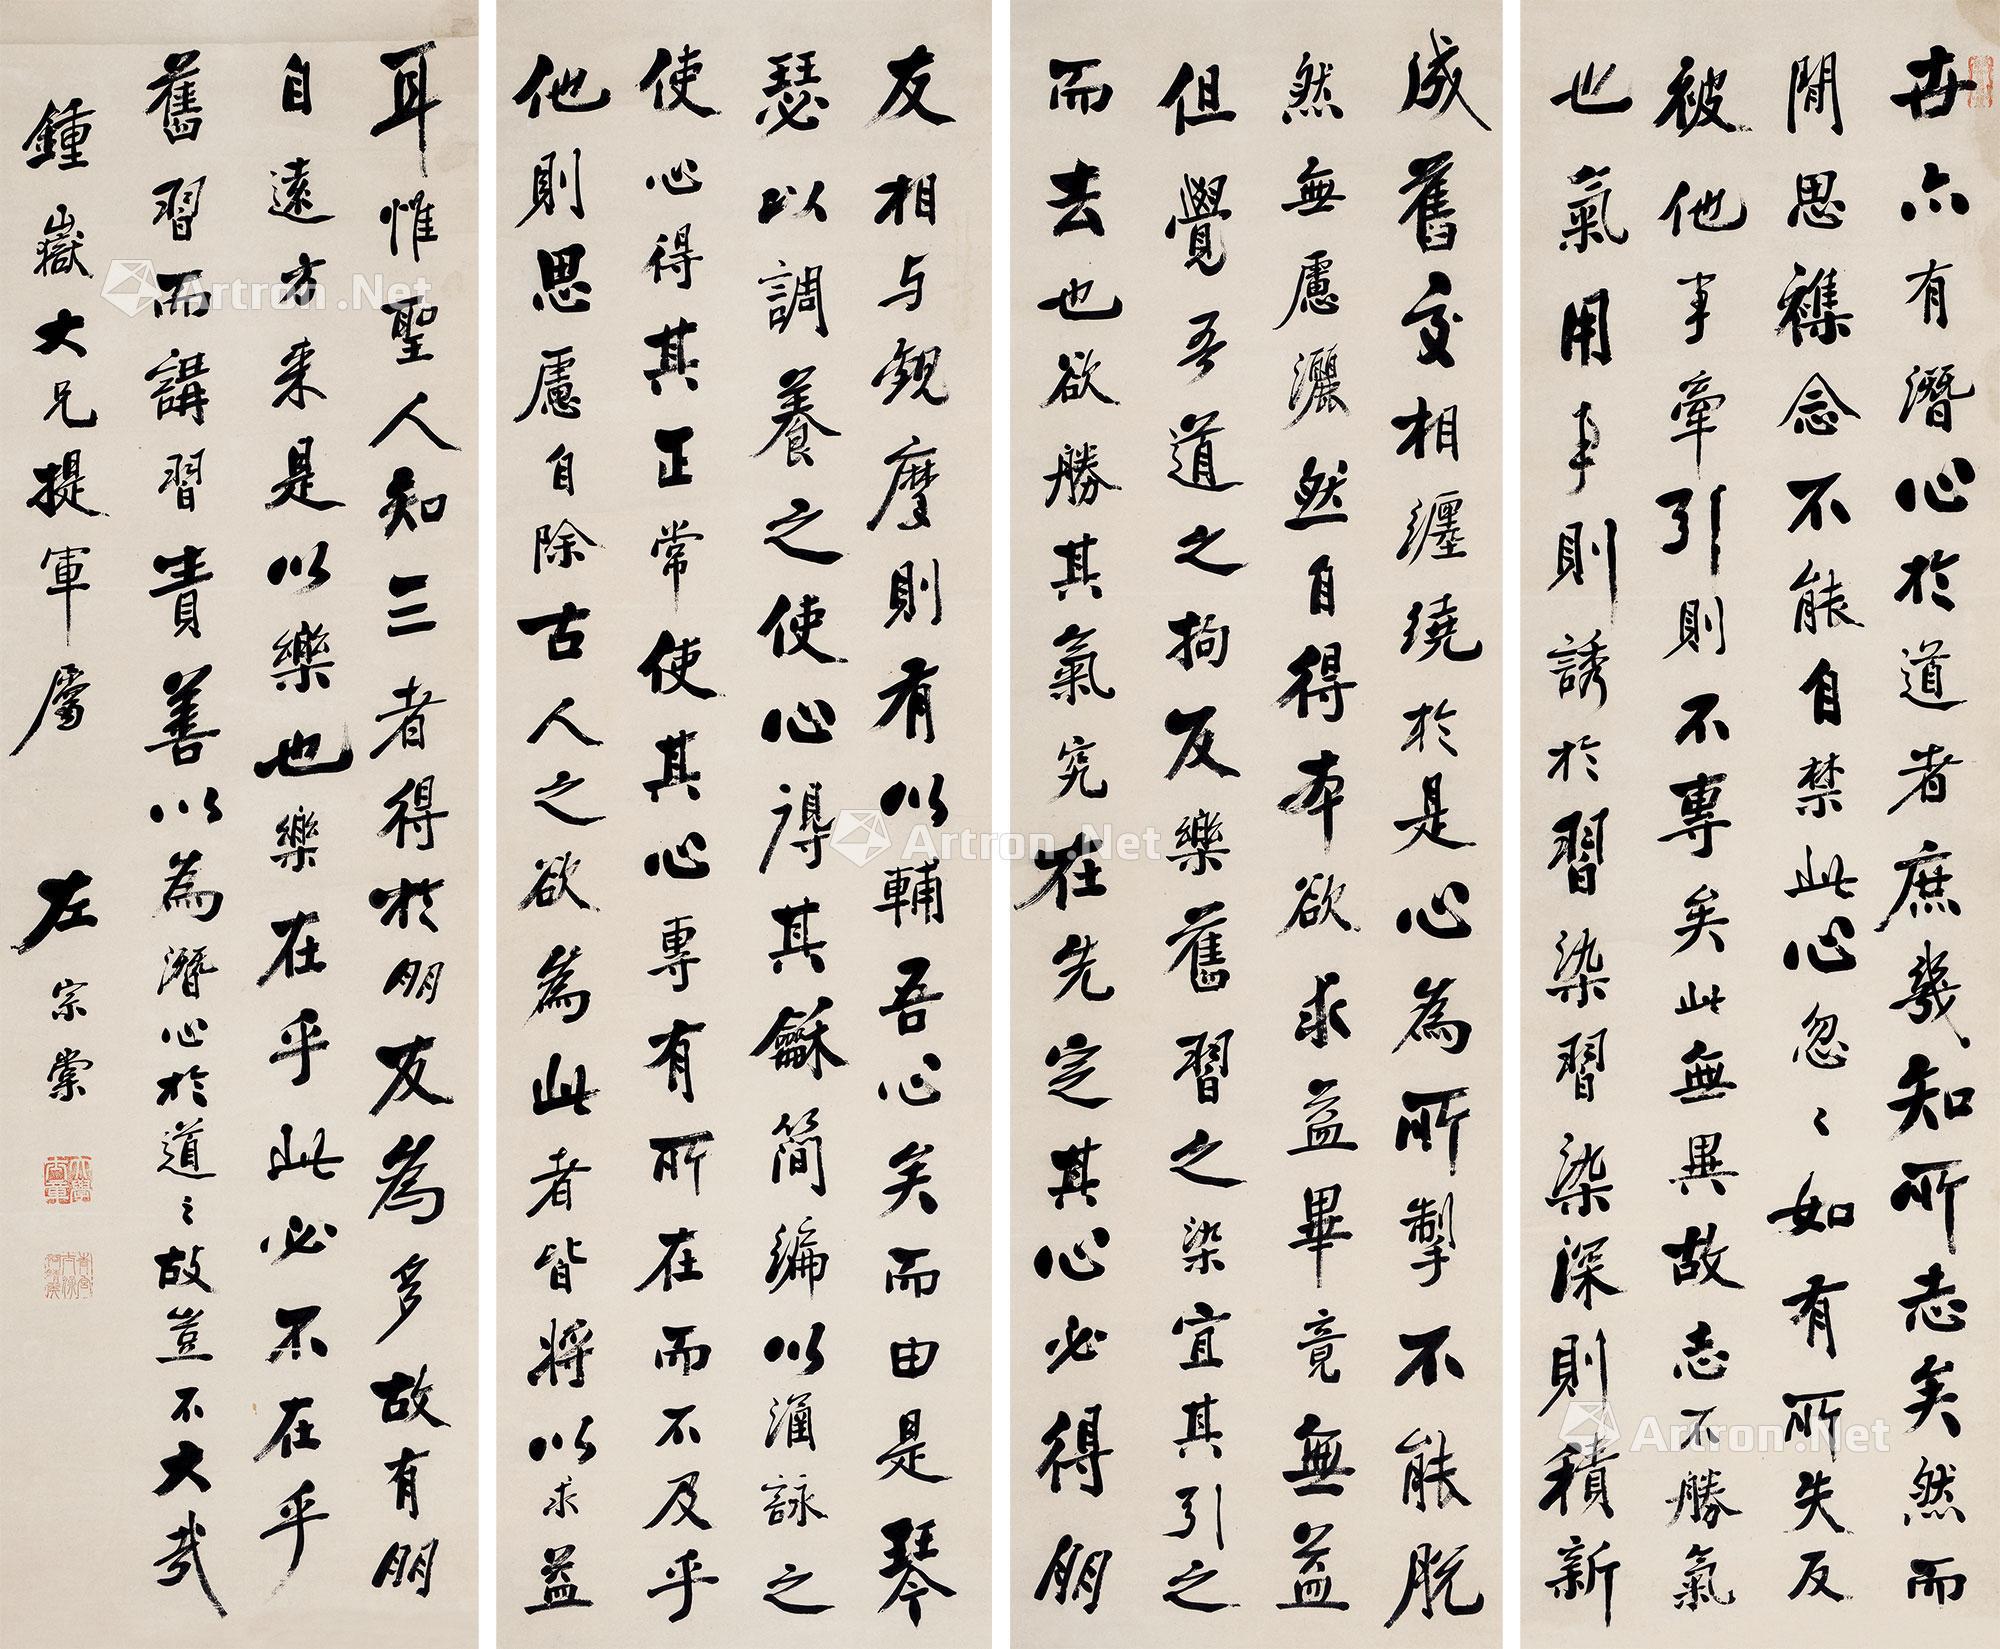 世亦有潛心於道者庶幾知所志矣然而
閒思襍念不能自禁此心忽〻如有所失反
被他事牽引則不專矣此無異故志不勝氣
也氣用事則誘於習染習染深則積新
成舊交相纏繞於是心為所掣不能脫
然無慮灑然自得本欲求益畢竟無益
但覺吾道之拘反樂舊習之染宜其引之
而去也欲勝其氣究在先定其心必得朋
友相与觀摩則有以輔吾心矣而由是琴
瑟以調養之使心得其龢簡編以涵詠之
使心得其正常使其心專有所在而不及乎
他則思慮自除古人之欲為此者皆將以求益
耳惟聖人知三者得於朋友為多故有朋
自遠方来是以樂也樂在乎此必不在乎
舊習而講習責善以為潛心於道〻故豈不大哉
鍾嶽大兄提軍屬 左宗棠
Artron.Net
Artron.Net
Artron.Net